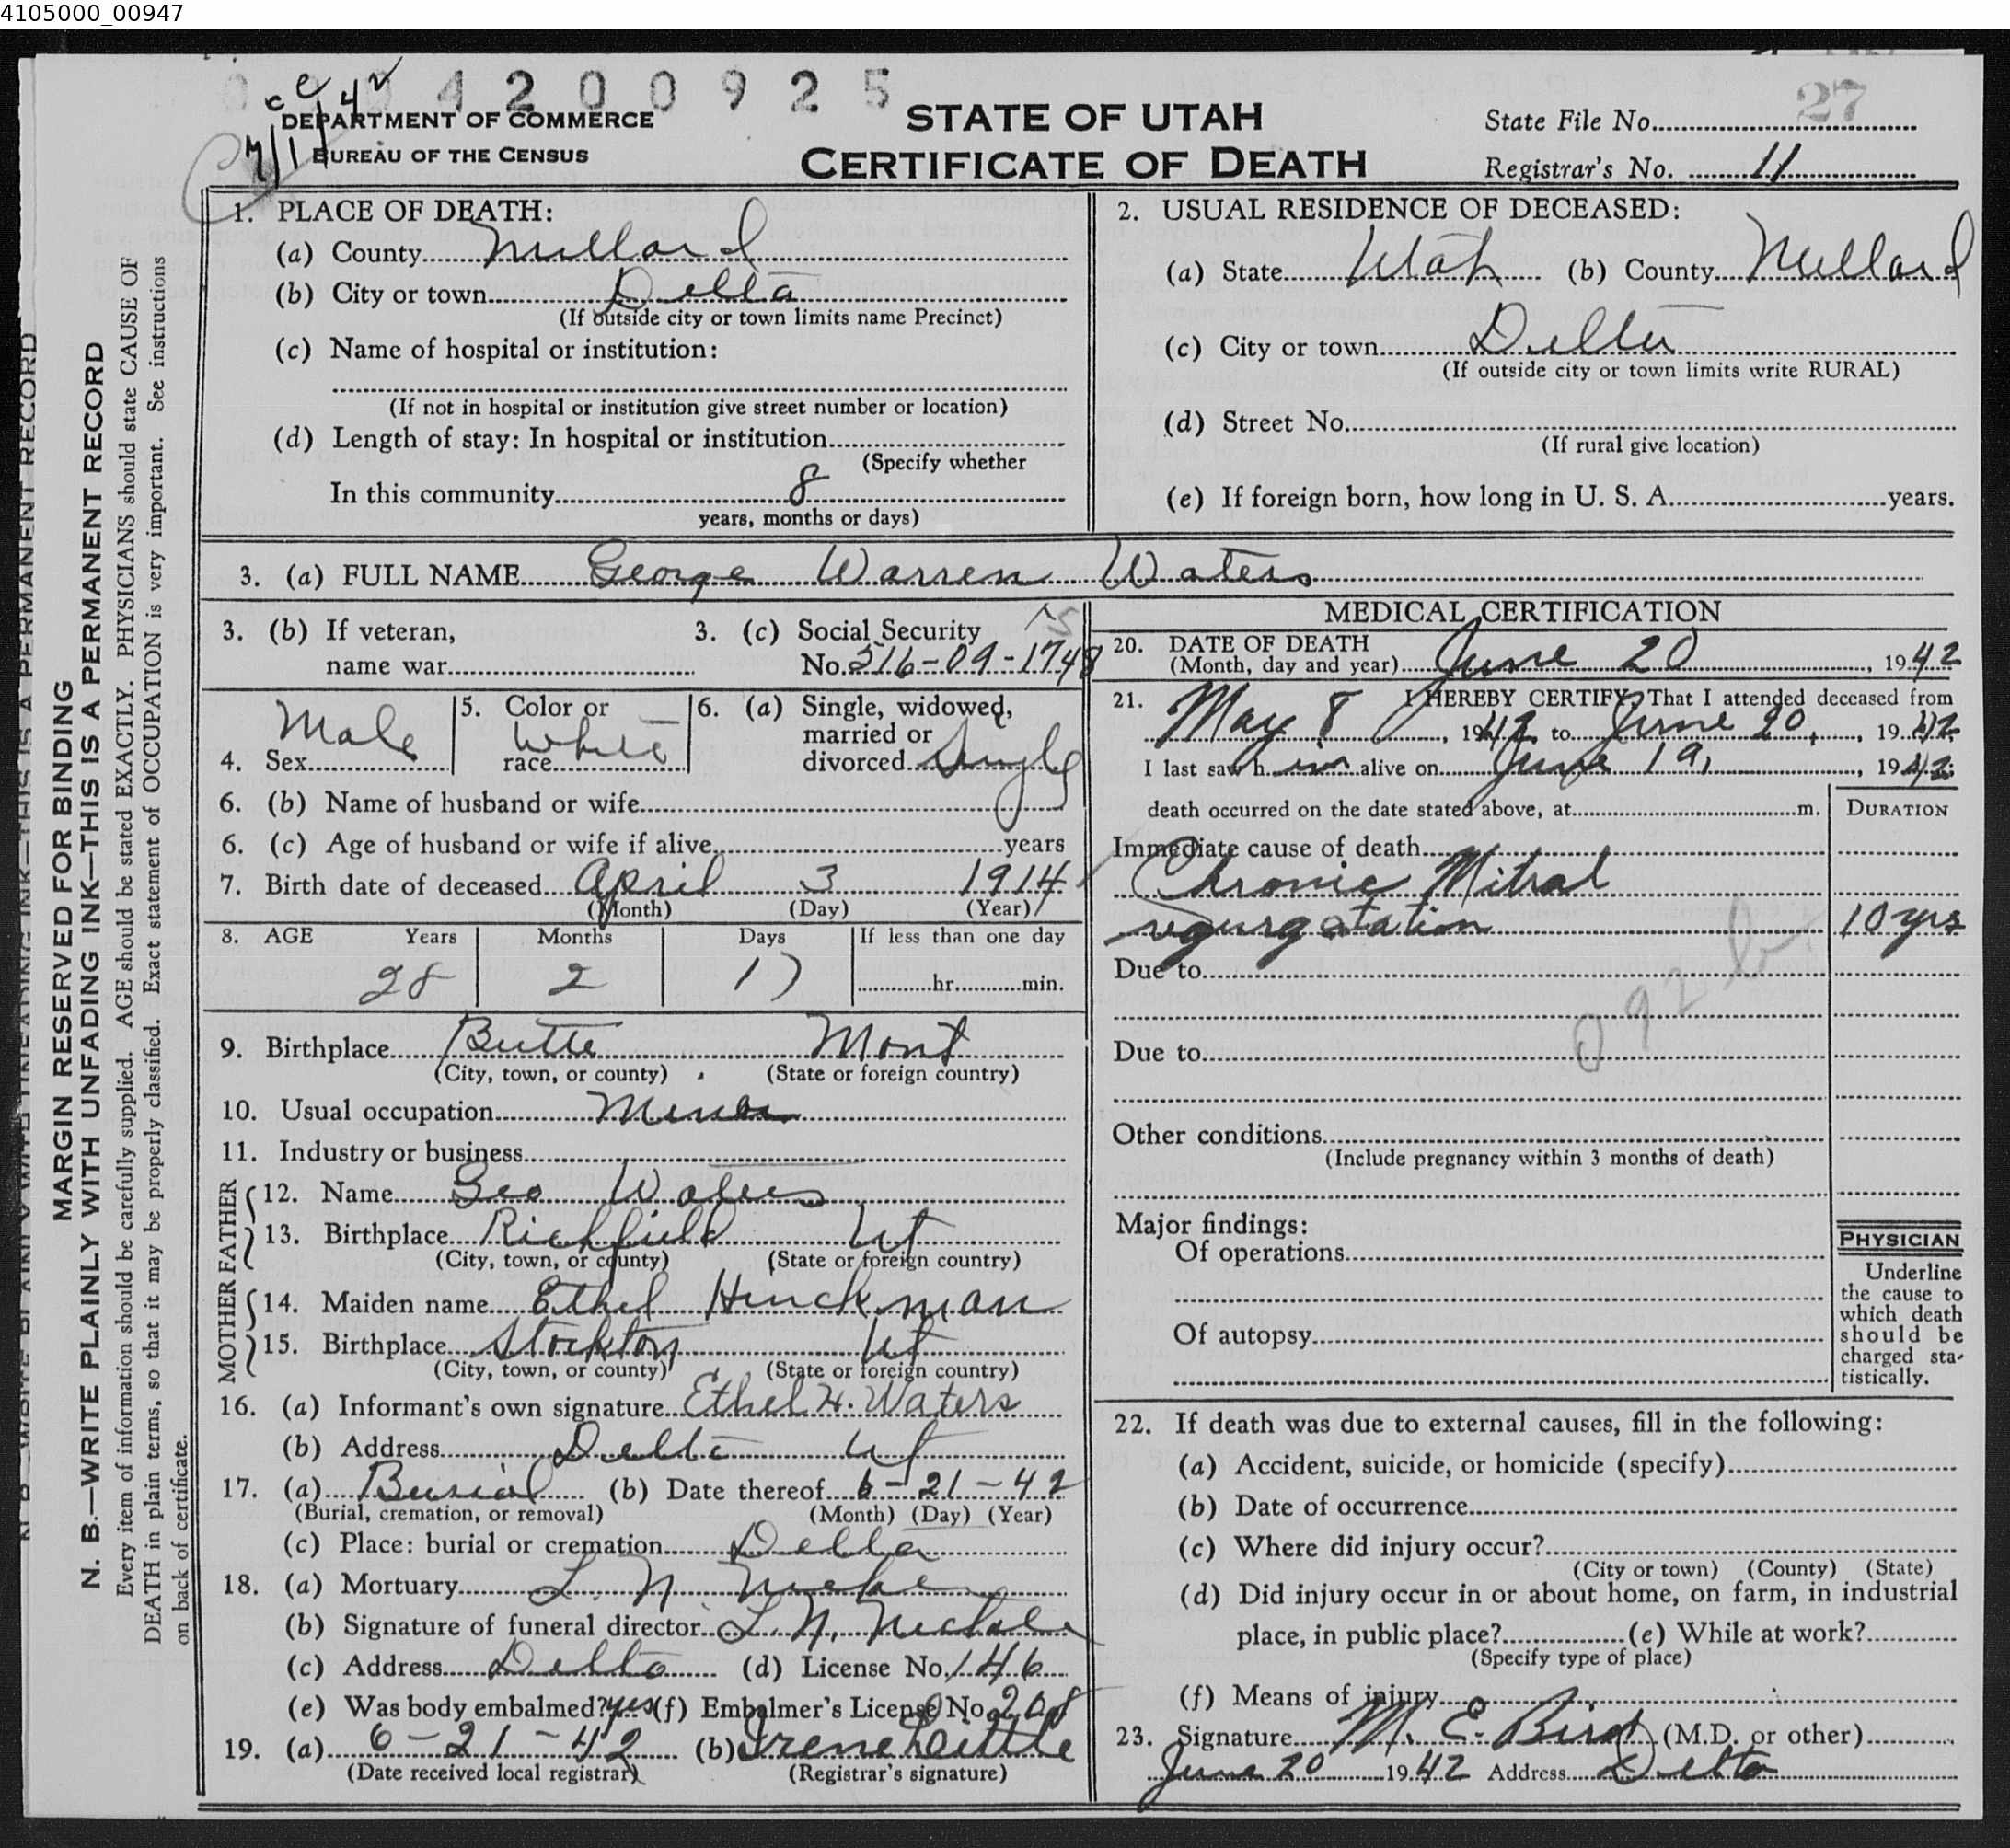 4105000_00947
4 2 0 0 9 2 5
DEPARTMENT OF COMMERCE
BUREAU OF THE CENSUS
STATE OF UTAH
CERTIFICATE OF DEATH
State File No. 27
Registrar's No. 11
MARGIN RESERVED FOR BINDING
N. B.—WRITE PLAINLY WITH UNFADING INK—THIS IS A PERMANENT RECORD
Every item of information should be carefully supplied. AGE should be stated EXACTLY. PHYSICIANS should state CAUSE OF
DEATH in plain terms, so that it may be properly classified. Exact statement of OCCUPATION is very important. See instructions
on back of certificate.
1. PLACE OF DEATH:
(a) County Millard
(b) City or town Delta
(If outside city or town limits name Precinct)
(c) Name of hospital or institution:
(If not in hospital or institution give street number or location)
(d) Length of stay: In hospital or institution
(Specify whether
In this community 8
years, months or days)
2. USUAL RESIDENCE OF DECEASED:
(a) State Utah (b) County Millard
(c) City or town Delta
(If outside city or town limits write RURAL)
(d) Street No.
(If rural give location)
(e) If foreign born, how long in U. S. A. years.
3. (a) FULL NAME George Warren Waters
3. (b) If veteran,
name war
3. (c) Social Security
No. 516-09-1748
4. Sex Male
5. Color or
race White
6. (a) Single, widowed,
married or
divorced Single
6. (b) Name of husband or wife
6. (c) Age of husband or wife if alive years
7. Birth date of deceased April 3 1914
(Month) (Day) (Year)
8. AGE Years Months Days If less than one day
28 2 17 hr. min.
9. Birthplace Butte Mont
(City, town, or county) (State or foreign country)
10. Usual occupation Miner
11. Industry or business
FATHER
12. Name Geo Waters
13. Birthplace Richfield Ut
(City, town, or county) (State or foreign country)
MOTHER
14. Maiden name Ethel Hinckman
15. Birthplace Stockton Ut
(City, town, or county) (State or foreign country)
16. (a) Informant's own signature Ethel H. Waters
(b) Address Delta Ut
17. (a) Burial (b) Date thereof 6-21-42
(Burial, cremation, or removal) (Month) (Day) (Year)
(c) Place: burial or cremation Delta
18. (a) Mortuary L. N.
(b) Signature of funeral director L. N.
(c) Address Delta (d) License No. 146
(e) Was body embalmed? yes (f) Embalmer's License No. 208
19. (a) 6-21-42 (b) Irene Little
(Date received local registrar) (Registrar's signature)
MEDICAL CERTIFICATION
20. DATE OF DEATH
(Month, day and year) June 20, 1942
21. I HEREBY CERTIFY, That I attended deceased from
May 8, 1942 to June 20, 1942
I last saw him alive on June 19, 1942
death occurred on the date stated above, at m.
DURATION
Immediate cause of death
Chronic Mitral
regurgatation 10 yrs
Due to
092 b
Due to
Other conditions
(Include pregnancy within 3 months of death)
Major findings:
Of operations
Of autopsy
PHYSICIAN
Underline
the cause to
which death
should be
charged sta-
tistically.
22. If death was due to external causes, fill in the following:
(a) Accident, suicide, or homicide (specify)
(b) Date of occurrence
(c) Where did injury occur?
(City or town) (County) (State)
(d) Did injury occur in or about home, on farm, in industrial
place, in public place? (e) While at work?
(Specify type of place)
(f) Means of injury
23. Signature M. E. Bird (M.D. or other)
June 20 1942 Address Delta